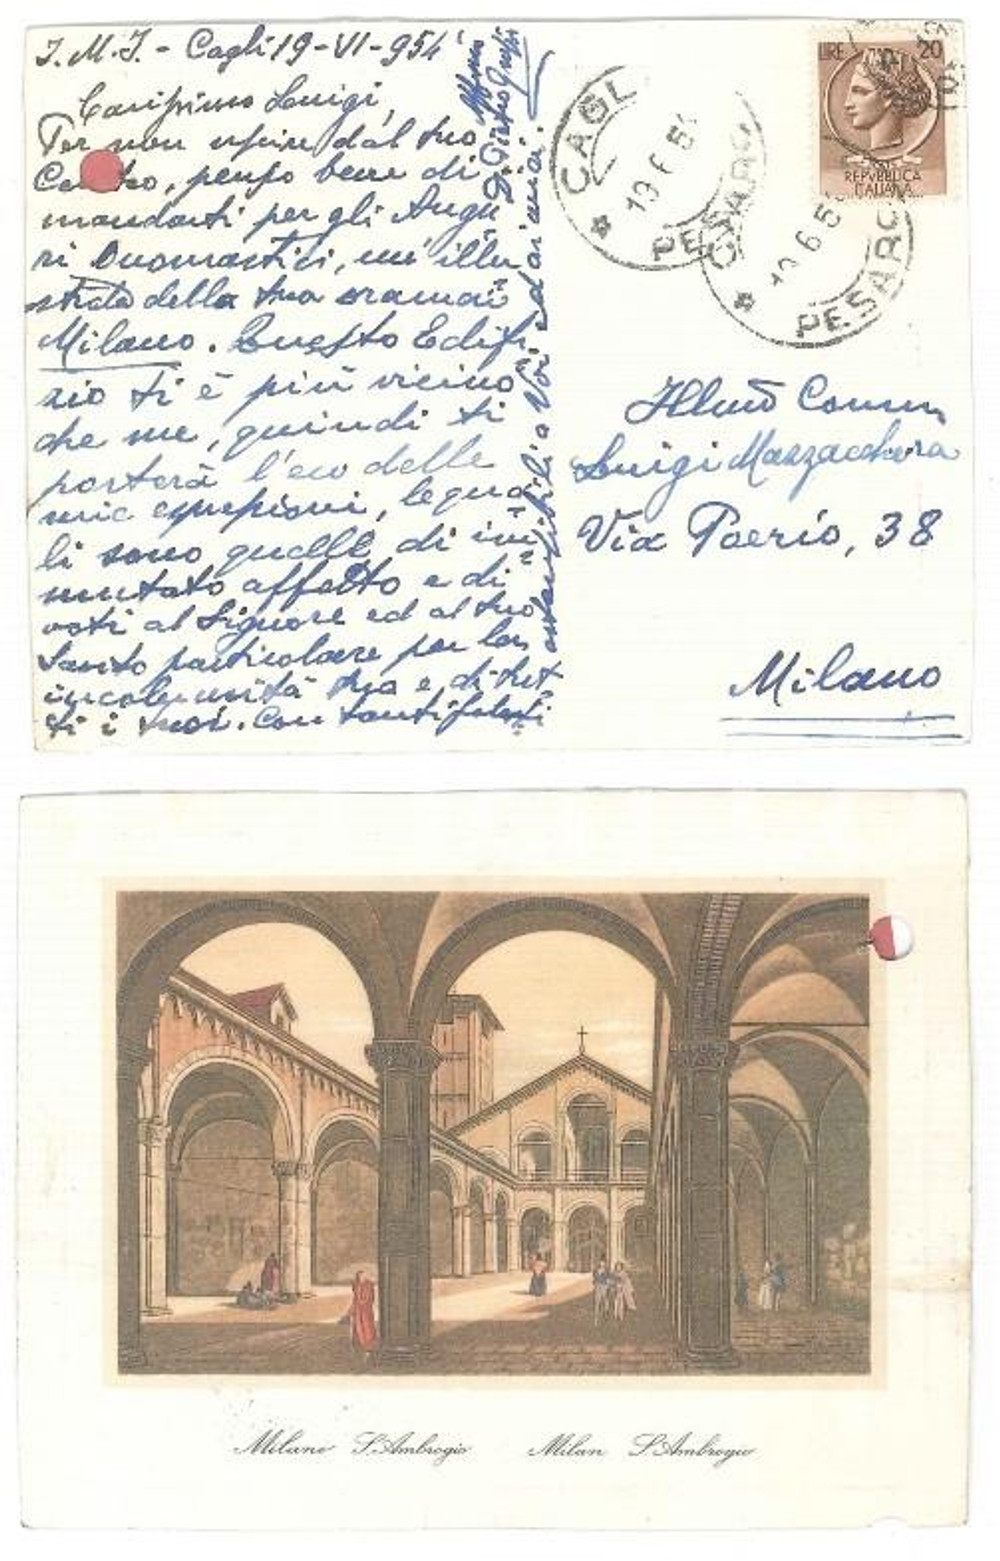 J. M. J. - Cagli 19-VI-954
Carissimo Luigi,
Per non uscire dal tuo
Centro, penso bene di
mandarti per gli Augu
ri Onomastici, un'illu
strata della tua oramai
Milano. Questo Edifi
zio ti è più vicino
che me, quindi ti
porterà l'eco delle
mie espressioni, le qua
li sono quelle di im
mutato affetto e di
voti al Signore ed al tuo
Santo particolare per la
incolumità tua e di tut
ti i tuoi. Con tanti saluti
a Voi
Affmo
D. Pietro
CAGLI
19 6 5
PESARO
CAGLI
19 6 5
PESARO
LIRE 20
REPVBBLICA
ITALIANA
Illmo Comm
Luigi Mazzacchera
Via Poerio, 38
Milano
Milano S. Ambrogio Milan S. Ambrogio